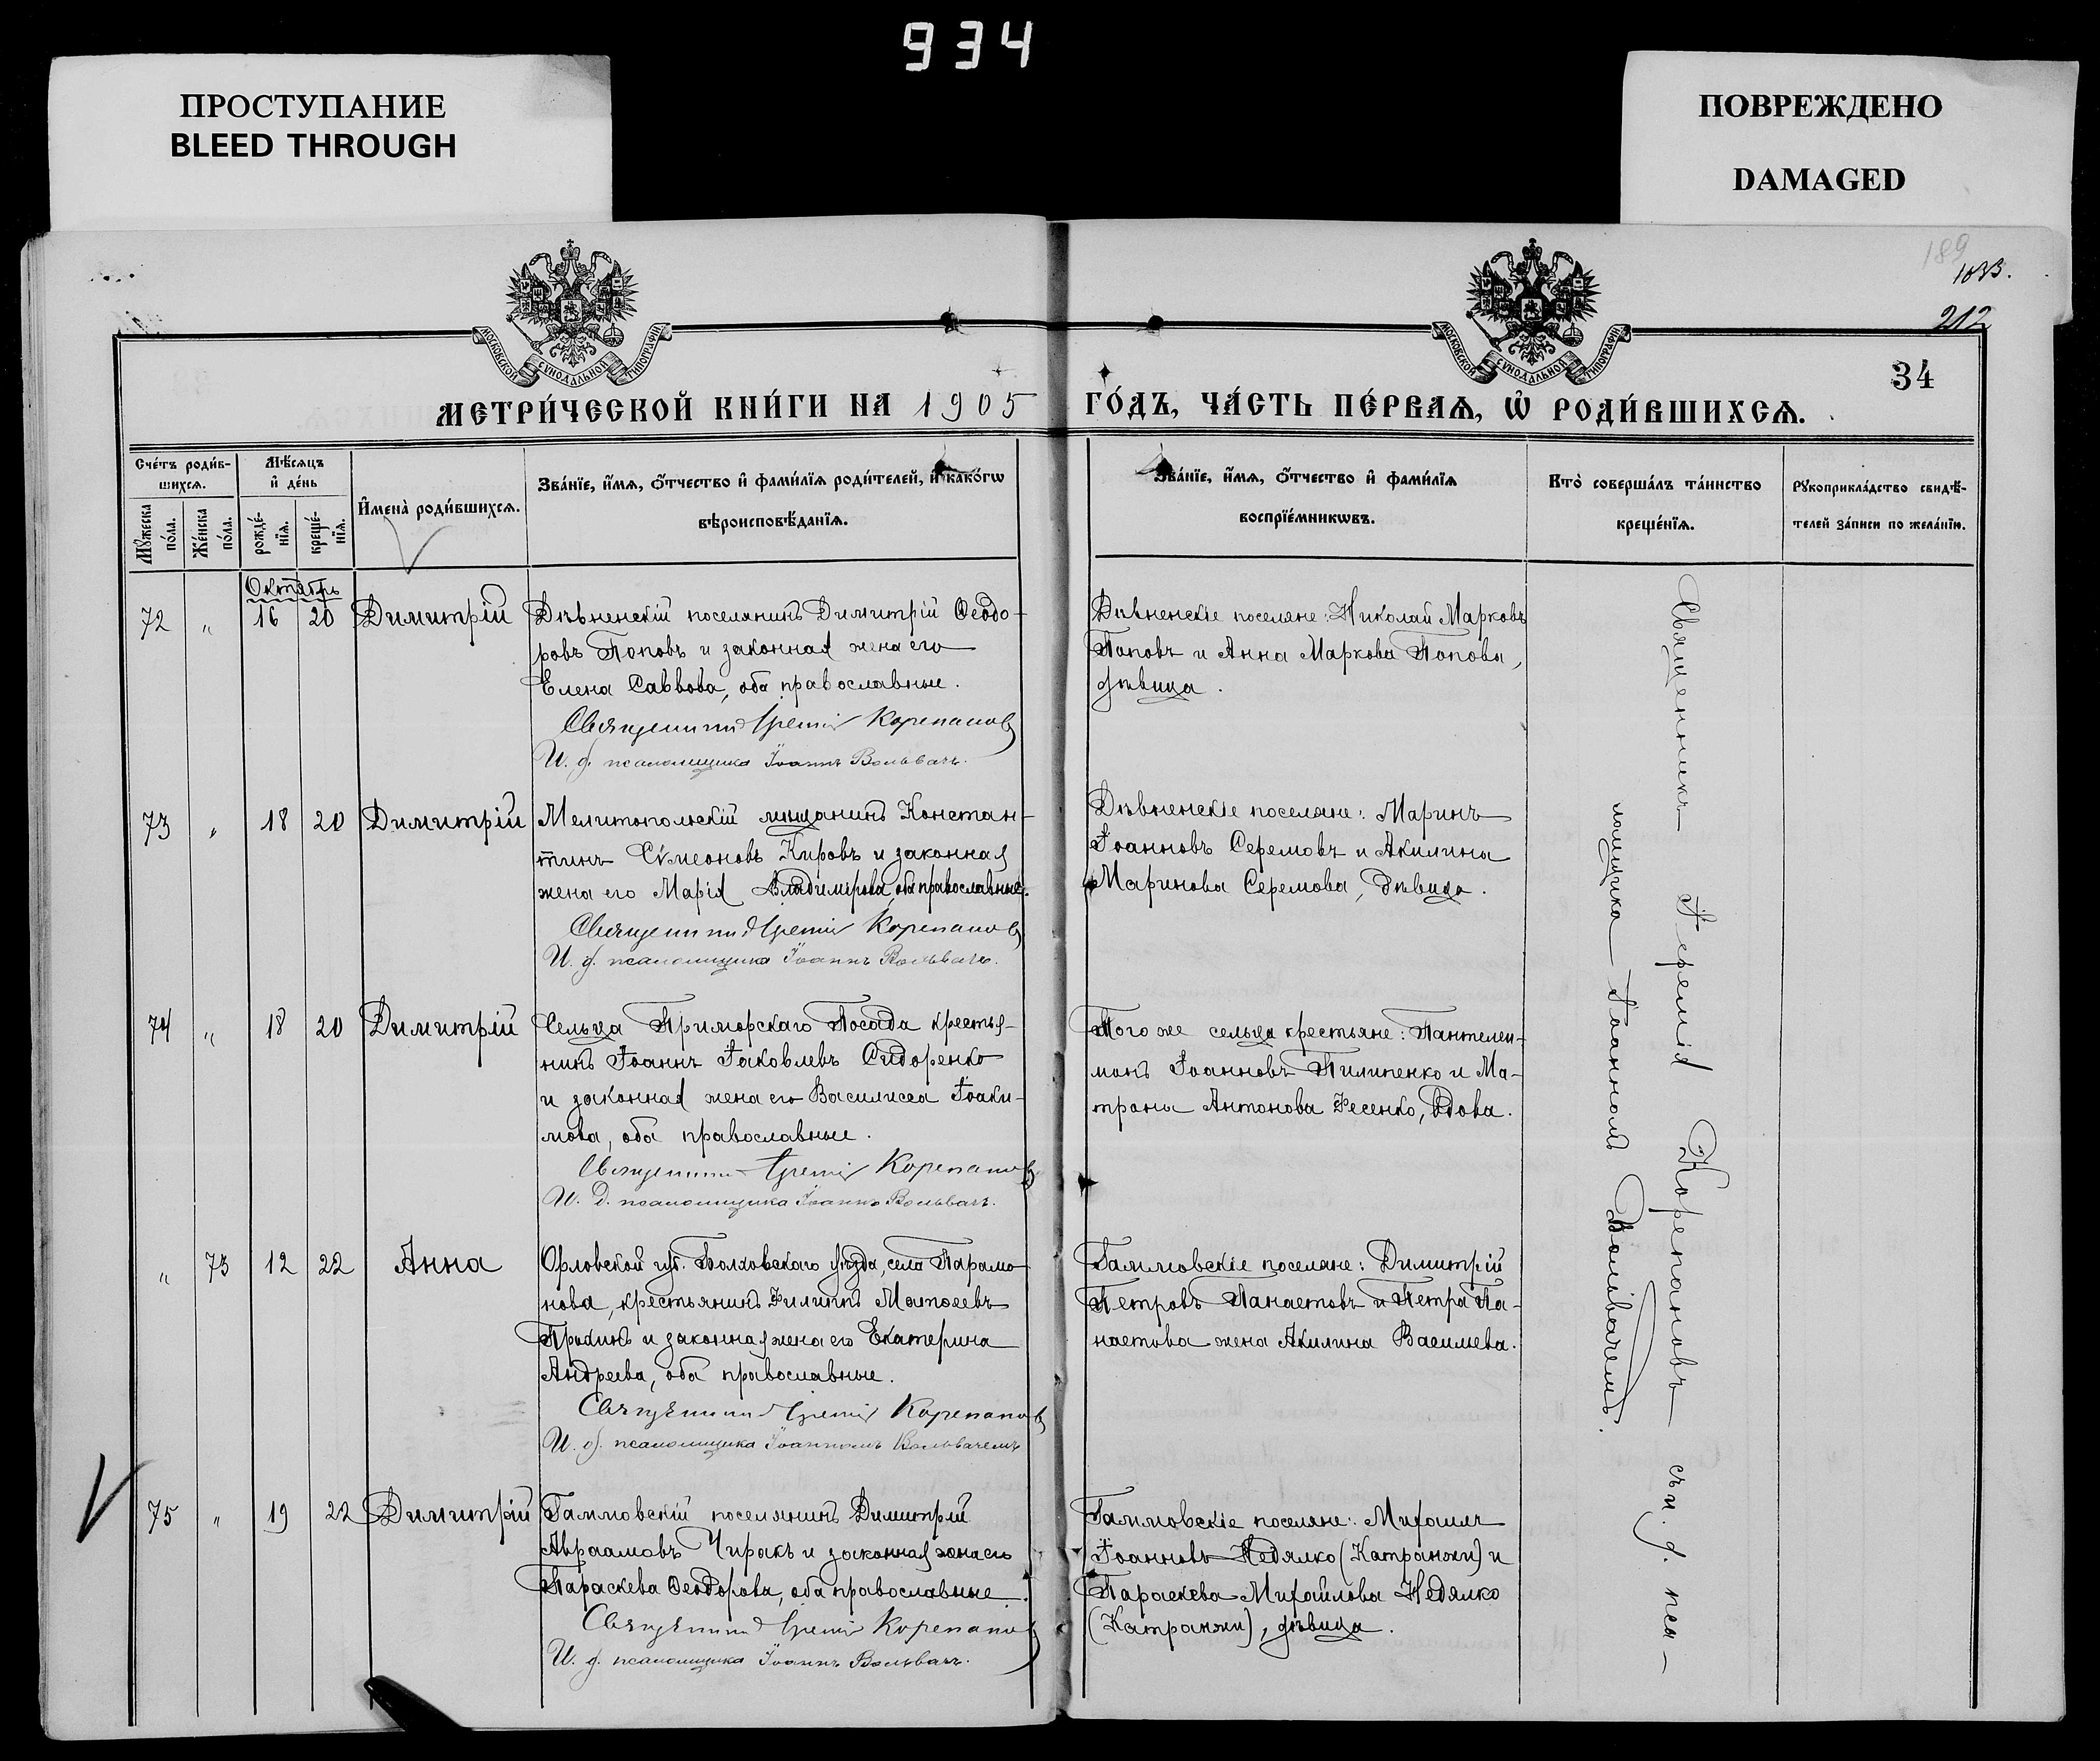 934
ПРОСТУПАНИЕ
BLEED THROUGH
ПОВРЕЖДЕНО
DAMAGED
189
1033.
212
34
МОСКОВСКОЙ СѴНОДАЛЬНОЙ ТИПОГРАФІИ
МОСКОВСКОЙ СѴНОДАЛЬНОЙ ТИПОГРАФІИ
МЕТРИ́ЧЕСКОЙ КНИ́ГИ НА 1905 ГО́ДЪ, ЧА́СТЬ ПЕ́РВАѦ, Ѡ҆ РОДИ́ВШИХСѦ.
Сче́тъ роди́в-
шихсѧ.
Мꙋ́жеска по́ла.
Же́нска по́ла.
Мѣ́сѧцъ
и҆ де́нь
рожде́-
нїѧ.
креще́-
нїѧ.
И҆мена̀ роди́вшихсѧ.
Зва́нїе, и҆́мѧ, ѻ҆́тчество и҆ фами́лїѧ роди́телей, и҆ како́гѡ
вѣроисповѣ́данїѧ.
Зва́нїе, и҆́мѧ, ѻ҆́тчество и҆ фами́лїѧ
воспрїе́мникѡвъ.
Кто̀ соверша́лъ та́инство
креще́нїѧ.
Рꙋкоприкла́дство свидѣ́-
телей за́писи по жела́нїю.
Октябрь
72 „ 16 20 Димитрій
Дѣвненскій поселянинъ Димитрій Ѳеодо-
ровъ Поповъ и законная жена его
Елена Саввова, оба православные.
Священникъ Іеремія Корепановъ
И. д. псаломщика Іоаннъ Вольвачъ.
Дѣвненскіе поселяне: Николай Марковъ
Поповъ и Анна Маркова Попова,
дѣвица.
73 „ 18 20 Димитрій
Мелитопольскій мѣщанинъ Констан-
тинъ Сѵмеоновъ Кировъ и законная
жена его Марія Владимірова, оба православные.
Священникъ Іеремія Корепановъ
И. д. псаломщика Іоаннъ Вольвачъ.
Дѣвненскіе поселяне: Маринъ
Іоанновъ Серемовъ и Акилина
Маринова Серемова, дѣвица.
74 „ 18 20 Димитрій
Сельца Приморскаго Посада крестья-
нинъ Іоаннъ Іаковлевъ Сидоренко
и законная жена его Василисса Іоаки-
мова, оба православные.
Священникъ Іеремія Корепановъ
И. д. псаломщика Іоаннъ Вольвачъ.
Того же сельца крестьяне: Пантелеи-
монъ Іоанновъ Пилипенко и Ма-
трона Антонова Фесенко, вдова.
„ 73 12 22 Анна
Орловской губ. Болховскаго уѣзда, села Парамо-
нова, крестьянинъ Филиппъ
и законная жена его Екатерина
Андреева, оба православные.
Священникъ Іеремія Корепановъ
И. д. псаломщика Іоанномъ Вольвачемъ
Гаммовскіе поселяне: Димитрій
Петровъ Панаетовъ и Петра Па-
наетова жена Акилина Васильева.
75 „ 19 22 Димитрій
Гаммовскій поселянинъ Димитрій
Авраамовъ Чиракъ и законная жена его
Параскева Ѳеодорова, оба православные.
Священникъ Іеремія Корепановъ
И. д. псаломщика Іоаннъ Вольвачъ.
Гаммовскіе поселяне: Михаилъ
Іоанновъ Недялко (Катранжи) и
Параскева Михайлова Недялко
(Катранжи), дѣвица.
Священникъ Іеремія Корепановъ съ и. д. пса-
ломщика Іоанномъ Вольвачемъ.